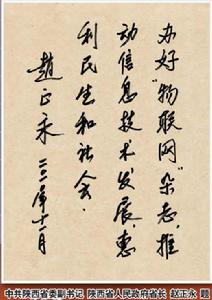 办好“物联网”杂志，推
动信息技术发展，惠
利民生和社会。
赵正永
二〇一〇年十一月
中共陕西省委副书记 陕西省人民政府省长 赵正永 题